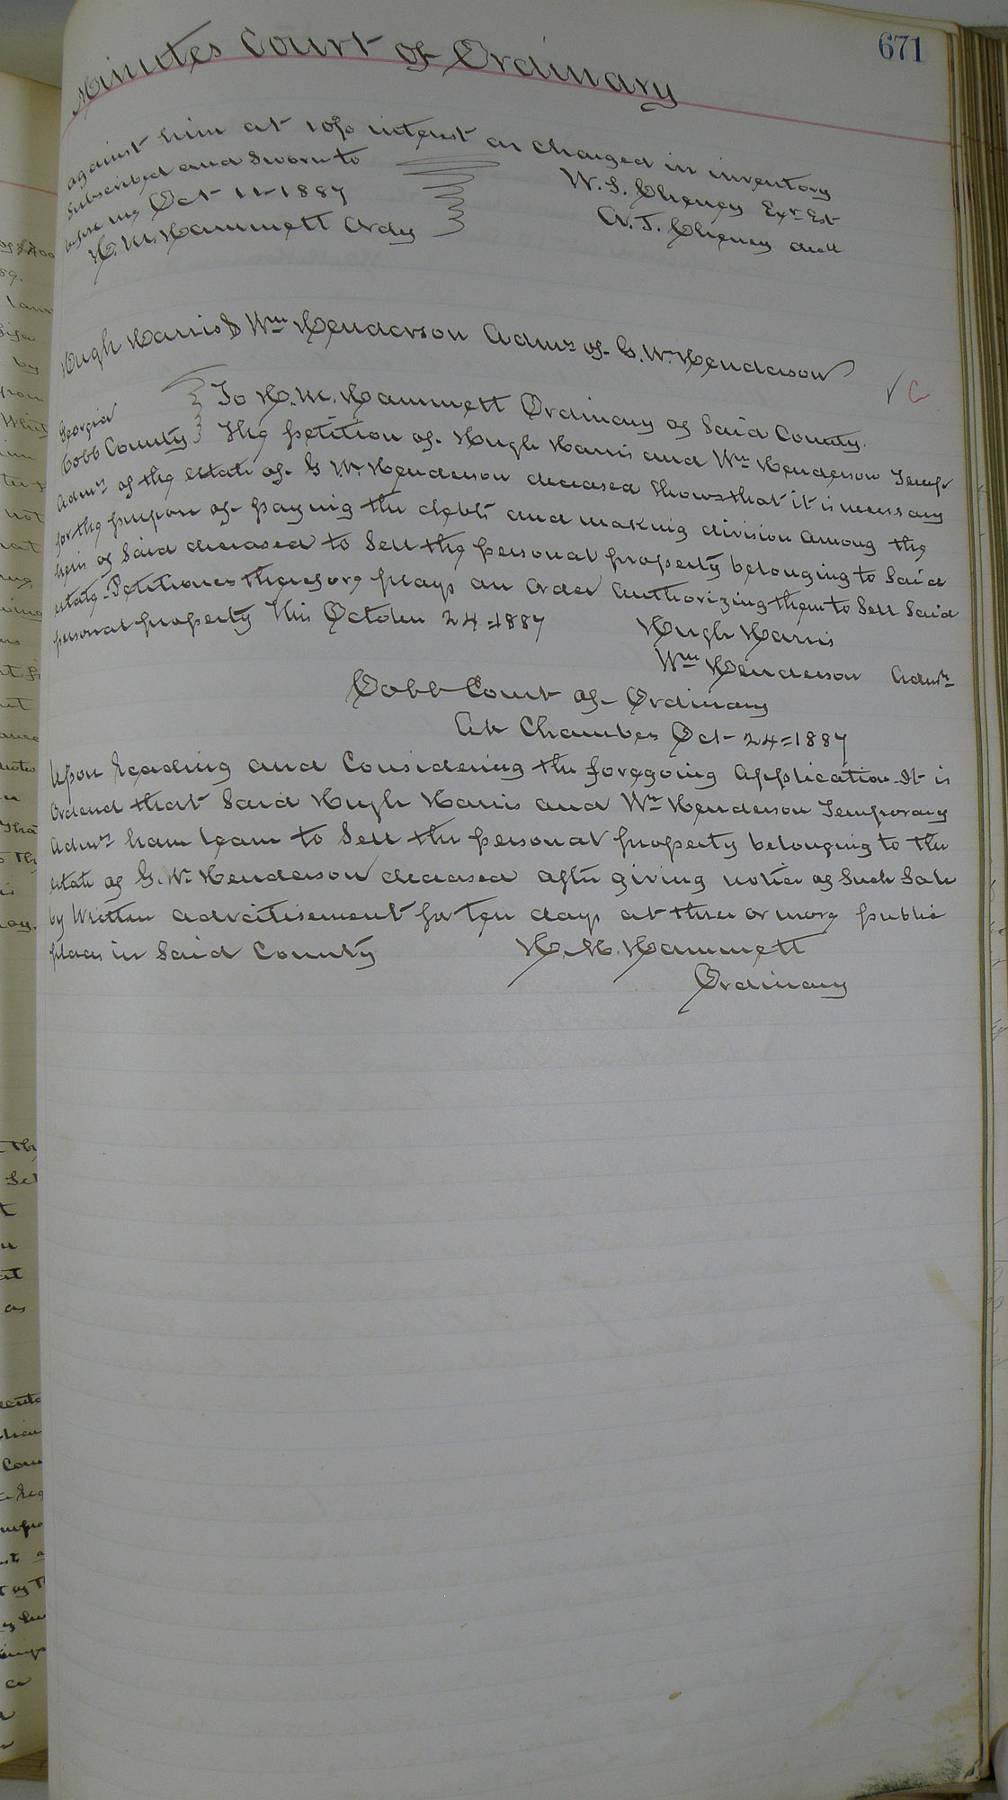 671
Minutes Court of Ordinary
against him at 10% interest as charged in inventory
Subscribed and Sworn to
before me Oct 11-1887
H. M. Hammett Ordy
W. S. Cheney Exr Est
A. J. Cheney decd
Hugh Harris & Wm Henderson Admrs of G. W. Henderson
Georgia
Cobb County
To H. M. Hammett Ordinary of Said County.
The petition of Hugh Harris and Wm Henderson Tempy
Admrs of the estate of G W. Henderson deceased Shows that it is necessary
for the purpose of paying the debts and making division among the
heirs of Said deceased to Sell the personal property belonging to Said
estate - Petitioners therefore prays an order authorizing them to Sell Said
personal property This October 24=1887
Hugh Harris
Wm Henderson Admrs
Cobb Court of Ordinary
At Chambers Oct-24=1887
Upon Reading and Considering the foregoing application It is
Ordered that Said Hugh Harris and Wm Henderson Temporary
Admrs have leave to Sell the personal property belonging to the
estate of G. W. Henderson deceased after giving notice of Such Sale
by Written advertisement for ten days at three or more public
places in Said County
H. M. Hammett
Ordinary